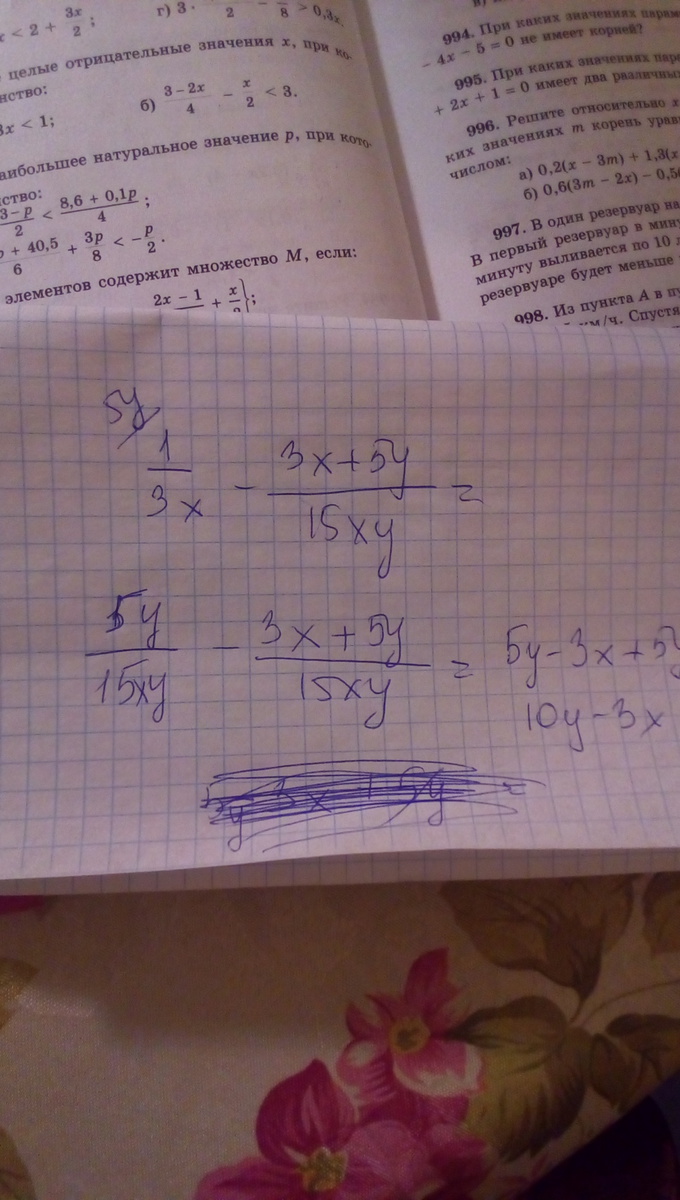 < 2 + 3x/2 ;
г) 3 ·
целые отрицательные значения x, при ко-
нство:
3x < 1;
б) (3 − 2x)/4 − x/2 < 3.
аибольшее натуральное значение p, при кото-
ство:
3 − p/2 < (8,6 + 0,1p)/4 ;
p + 40,5/6 + 3p/8 < −p/2 .
элементов содержит множество M, если:
2x − 1
994. При каких значениях парам
− 4x − 5 = 0 не имеет корней?
995. При каких значениях пар
+ 2x + 1 = 0 имеет два различны
996. Решите относительно x
ких значениях m корень урав
числом:
а) 0,2(x − 3m) + 1,3(x
б) 0,6(3m − 2x) − 0,5
997. В один резервуар на
В первый резервуар в мин
минуту выливается по 10 л
резервуаре будет меньше
998. Из пункта A в пу
км/ч. Спустя
5y
1/3x − (3x+5y)/15xy =
5y/15xy − (3x+5y)/15xy = 5y−3x+5y
10y−3x